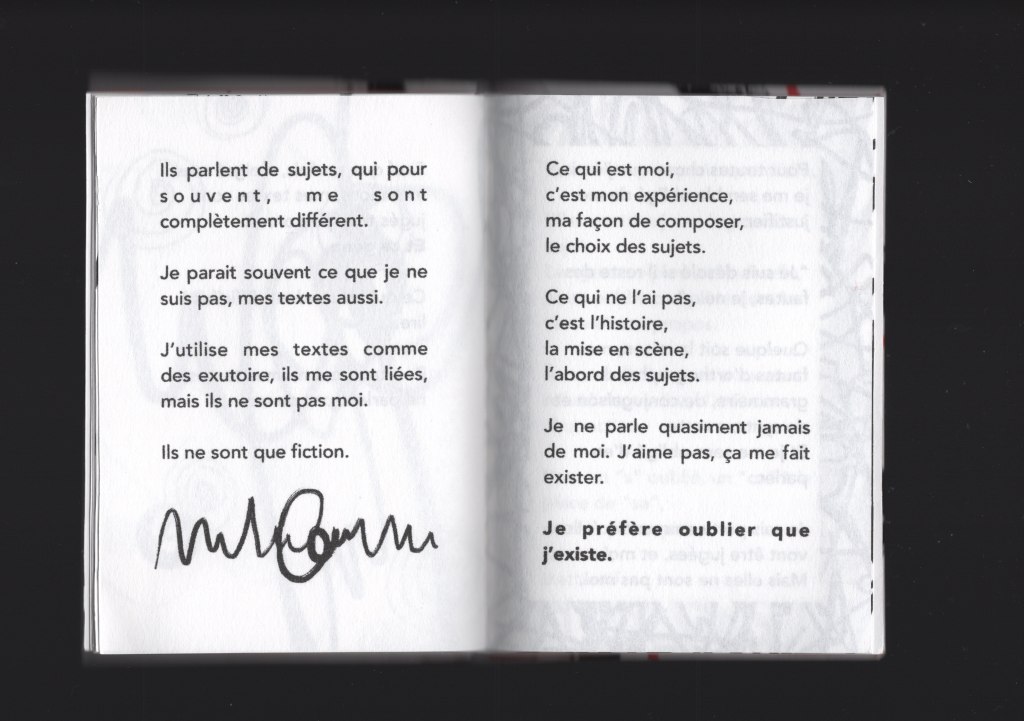 Ils parlent de sujets, qui pour
souvent, me sont
complètement différent.
Je parait souvent ce que je ne
suis pas, mes textes aussi.
J'utilise mes textes comme
des exutoire, ils me sont liées,
mais ils ne sont pas moi.
Ils ne sont que fiction.
Ce qui est moi,
c'est mon expérience,
ma façon de composer,
le choix des sujets.
Ce qui ne l'ai pas,
c'est l'histoire,
la mise en scène,
l'abord des sujets.
Je ne parle quasiment jamais
de moi. J'aime pas, ça me fait
exister.
Je préfère oublier que
j'existe.